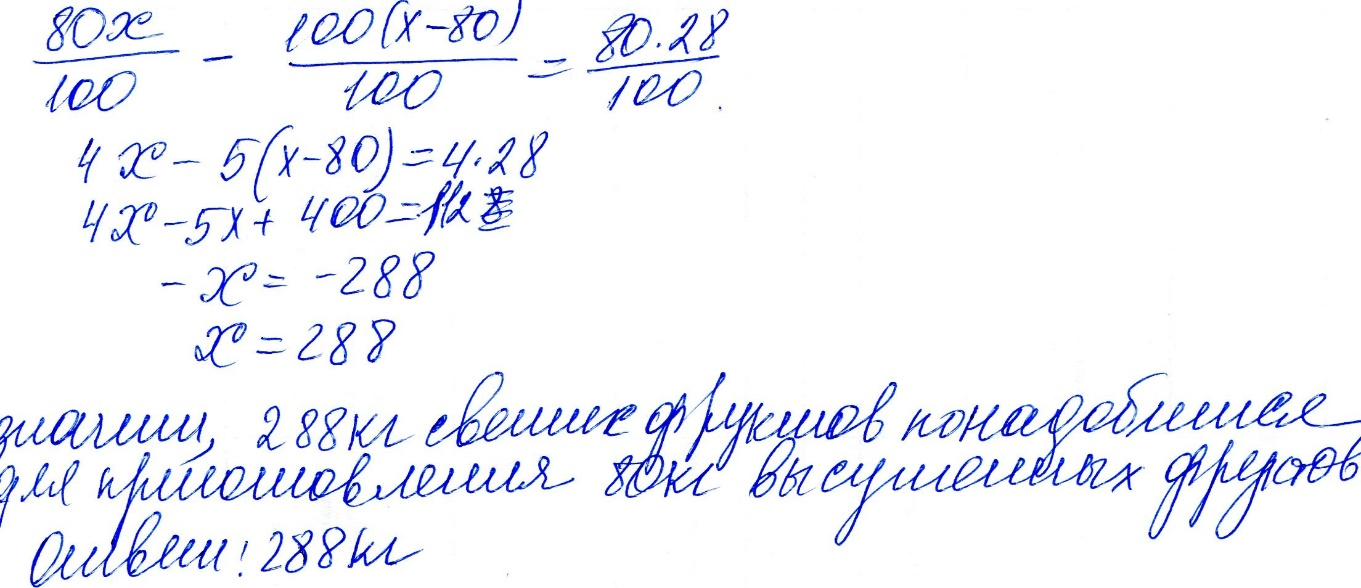 80x/100 - 100(x-80)/100 = 80.28/100.
4x - 5(x-80) = 4.28
4x - 5x + 400 = 112
- x = -288
x = 288
значит, 288кг свежих фруктов понадобится
для приготовления 80кг высушенных фруктов
Ответ: 288кг